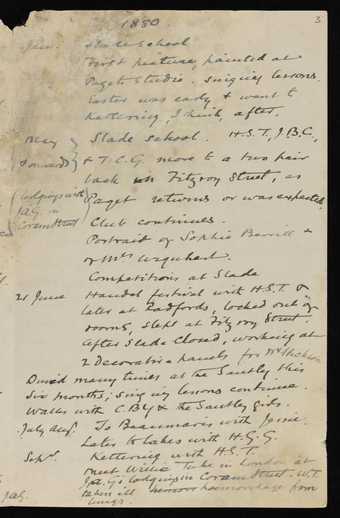 1880.
3
Jan. Slade School
First picture, painted at
Paget's Studio. Singing lessons.
Easter was early & went to
Kettering, I think, after.
May Slade School. H.S.T, J.B.C,
& onwards & T.C.G. move to a two pair
back in Fitzroy Street, as
(lodgings with Paget returns or was expected.
J.A.G. in Club continues.
Coram Street
Portrait of Sophie &
of Mrs Urquhart.
Competitions at Slade
21 June Handel festival with H.S.T. &
later at Radfords, locked out of
rooms, slept at Fitzroy Street.
After Slade closed, working at
2 Decorative panels for
Dined many times at the Santley this
six months, singing lessons continue.
Walks with C.B.Y & the Santley girls.
July Aug. To Beaumaris with Josie.
Later to Lakes with H.G.G.
Sept. Kettering with H.S.T.
meet Willie Tuke in London at
J.A.G's lodgings in Coram Street. W.T.
taken ill haemorrhage from
lungs.
J.A.G.